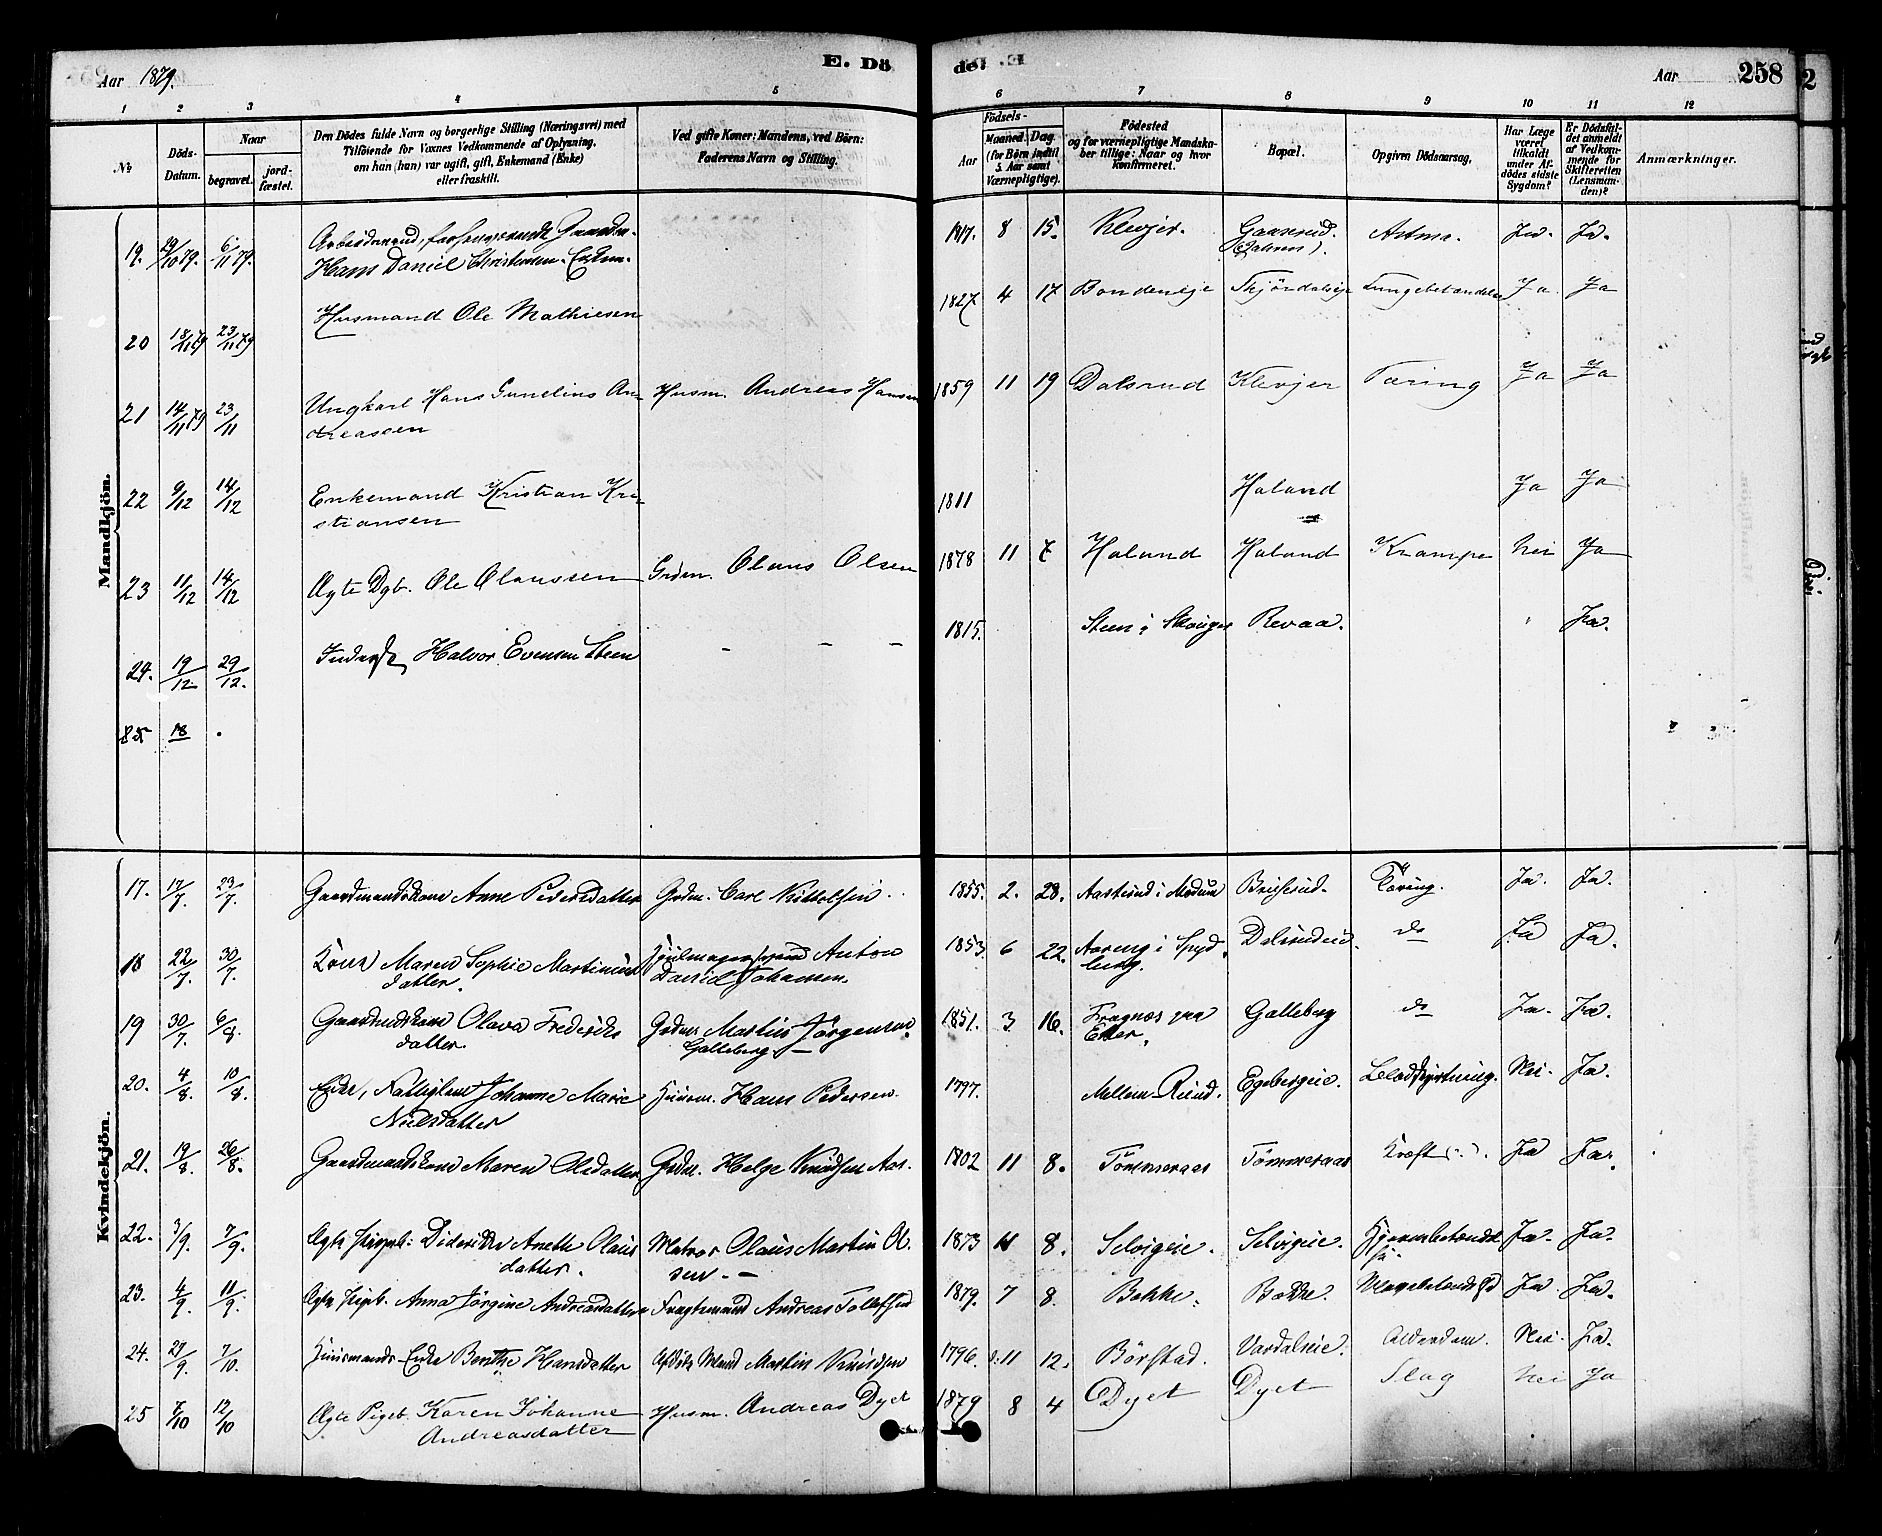 Aar 1879.
E. Dö
de.
Aar
258
1 2 3 4 5 6 7 8 9 10 11 12
No
Döds-Datum.
Naar
begravet.
jord-fæstet.
Den Dödes fulde Navn og borgerlige Stilling (Næringsvei) med
Tilföiende for Voxnes Vedkommende af Oplysning,
om han (hun) var ugift, gift, Enkemand (Enke)
eller fraskilt.
Ved gifte Koner: Mandens, ved Börn:
Faderens Navn og Stilling.
Födsels-
Aar
Maaned. Dag.
(for Börn indtil
5 Aar samt
Værnepligtige).
Födested
og for værnepligtige Mandska-
ber tillige: Naar og hvor
konfirmeret.
Bopæl.
Opgiven Dödsaarsag,
Har Læge
været
tilkaldt
under Af-
dödes sidste
Sygdom?
Er Dödsfal-
det anmeldt
af Vedkom-
mende for
Skifteretten
(Lensman-
den)?
Anmærkninger.
Mandkjön.
19. 29/10 79. 6/11 79. Hans Daniel Christensen. Enkem. 1817. 8 15. Klevjer. Gaaserud. Astma. Ja. Ja.
20 18/11 79 23/11 79 Husmand Ole Mathiesen 1827 4 17 Bondeneje Lungebetændelse Ja Ja
21 14/11 79 23/11 Ungkarl Hans Gunelius An-
dreassen Husm. Andreas Hansen 1859 11 19 Dalsrud Klevjer Tæring Ja Ja
22 9/12 14/12 Enkemand Kristian Kri-
stiansen 1811 Haland Ja Ja
23 11/12 14/12 Ægte Dgb. Ole Olaussen Grdm. Olaus Olsen 1878 11 7 Haland Haland Krampe Nei Ja
24. 19/12 29/12. Inderst Halvor Evensen Steen - - - 1815. Steen i Skouger Revaa. Ja.
18
Kvindekjön.
17. 17/7 23/7. Gaardmandskone Anne Pedersdatter Grdm. Carl Kittolsen 1855. 2. 28. Aasterud i Modum Tæring. Ja. Ja.
18 22/7. 30/7. Kone Maren Sophie Martinius
datter. Hjulmagersvend Anton
David Johansen. 1853 6 22. Aareng i Spyd-
berg. do Ja Ja.
19 30/7. 6/8. Olava Frederiks
datter. Grdm. Martin Jörgensen
Galleberg - 1851. 3 16. Fragnæs paa
Eker. Galleberg do Ja. Ja.
20. 4/8. 10/8. Enke, Johanne Marie
Nielsdatter Husm. Hans Pedersen. 1797. Mellem-Ruud. Egebergeie. Nei. Ja.
21. 19/8. 26/8. Gaardmandskone Maren Olsdatter Grdm. Helge Knudsen Aas. 1802 11 8. Tömmeraas Tömmeraas Kræft Ja Ja.
22. 3/9. 7/9. Ægte Pigeb: Didrikke Anette Olaus
datter. Matros Olaus Martin Ol-
sen. - 1873 8. Selvigeie. Selvigeie. Ja. Ja.
23. 4/9. 11/9. Ægte Pigeb. Anna Jörgine Andreasdatter Fragtemand Andreas Tollefsen 1879. 7 8. Bakke. Bakke. Ja Ja.
24. 29/9. 7/10. Husmands Enke Berthe Hansdatter Martin Knudsen 1796. 11 12. Börstad. Vardalseie. Alderdom. Nei. Ja.
25 7/10 12/10 Ægte Pigeb. Karen Johanne
Andreasdatter Husm. Andreas Dyet 1879 8 4 Dyet Dyet Slag Nei Ja